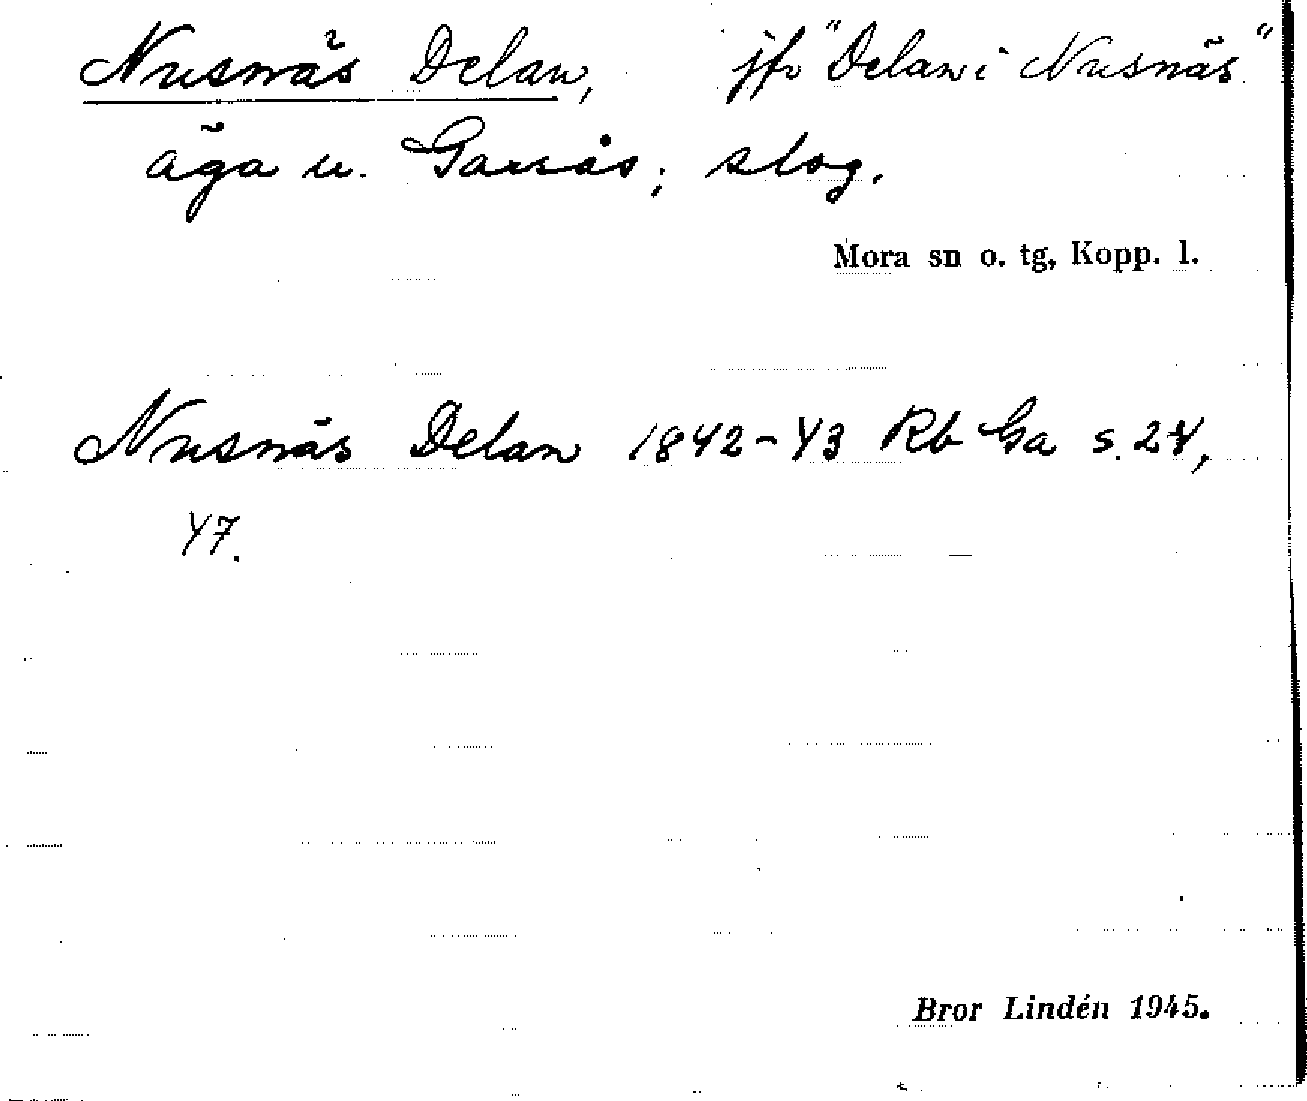 Nusnäs Delan, jfr "Delan i Nusnäs"
äga u. Garsås; slog.
Mora sn o. tg, Kopp. l.
Nusnäs Delan 1842-43 Rb Ga s. 24,
47.
Bror Lindén 1945.